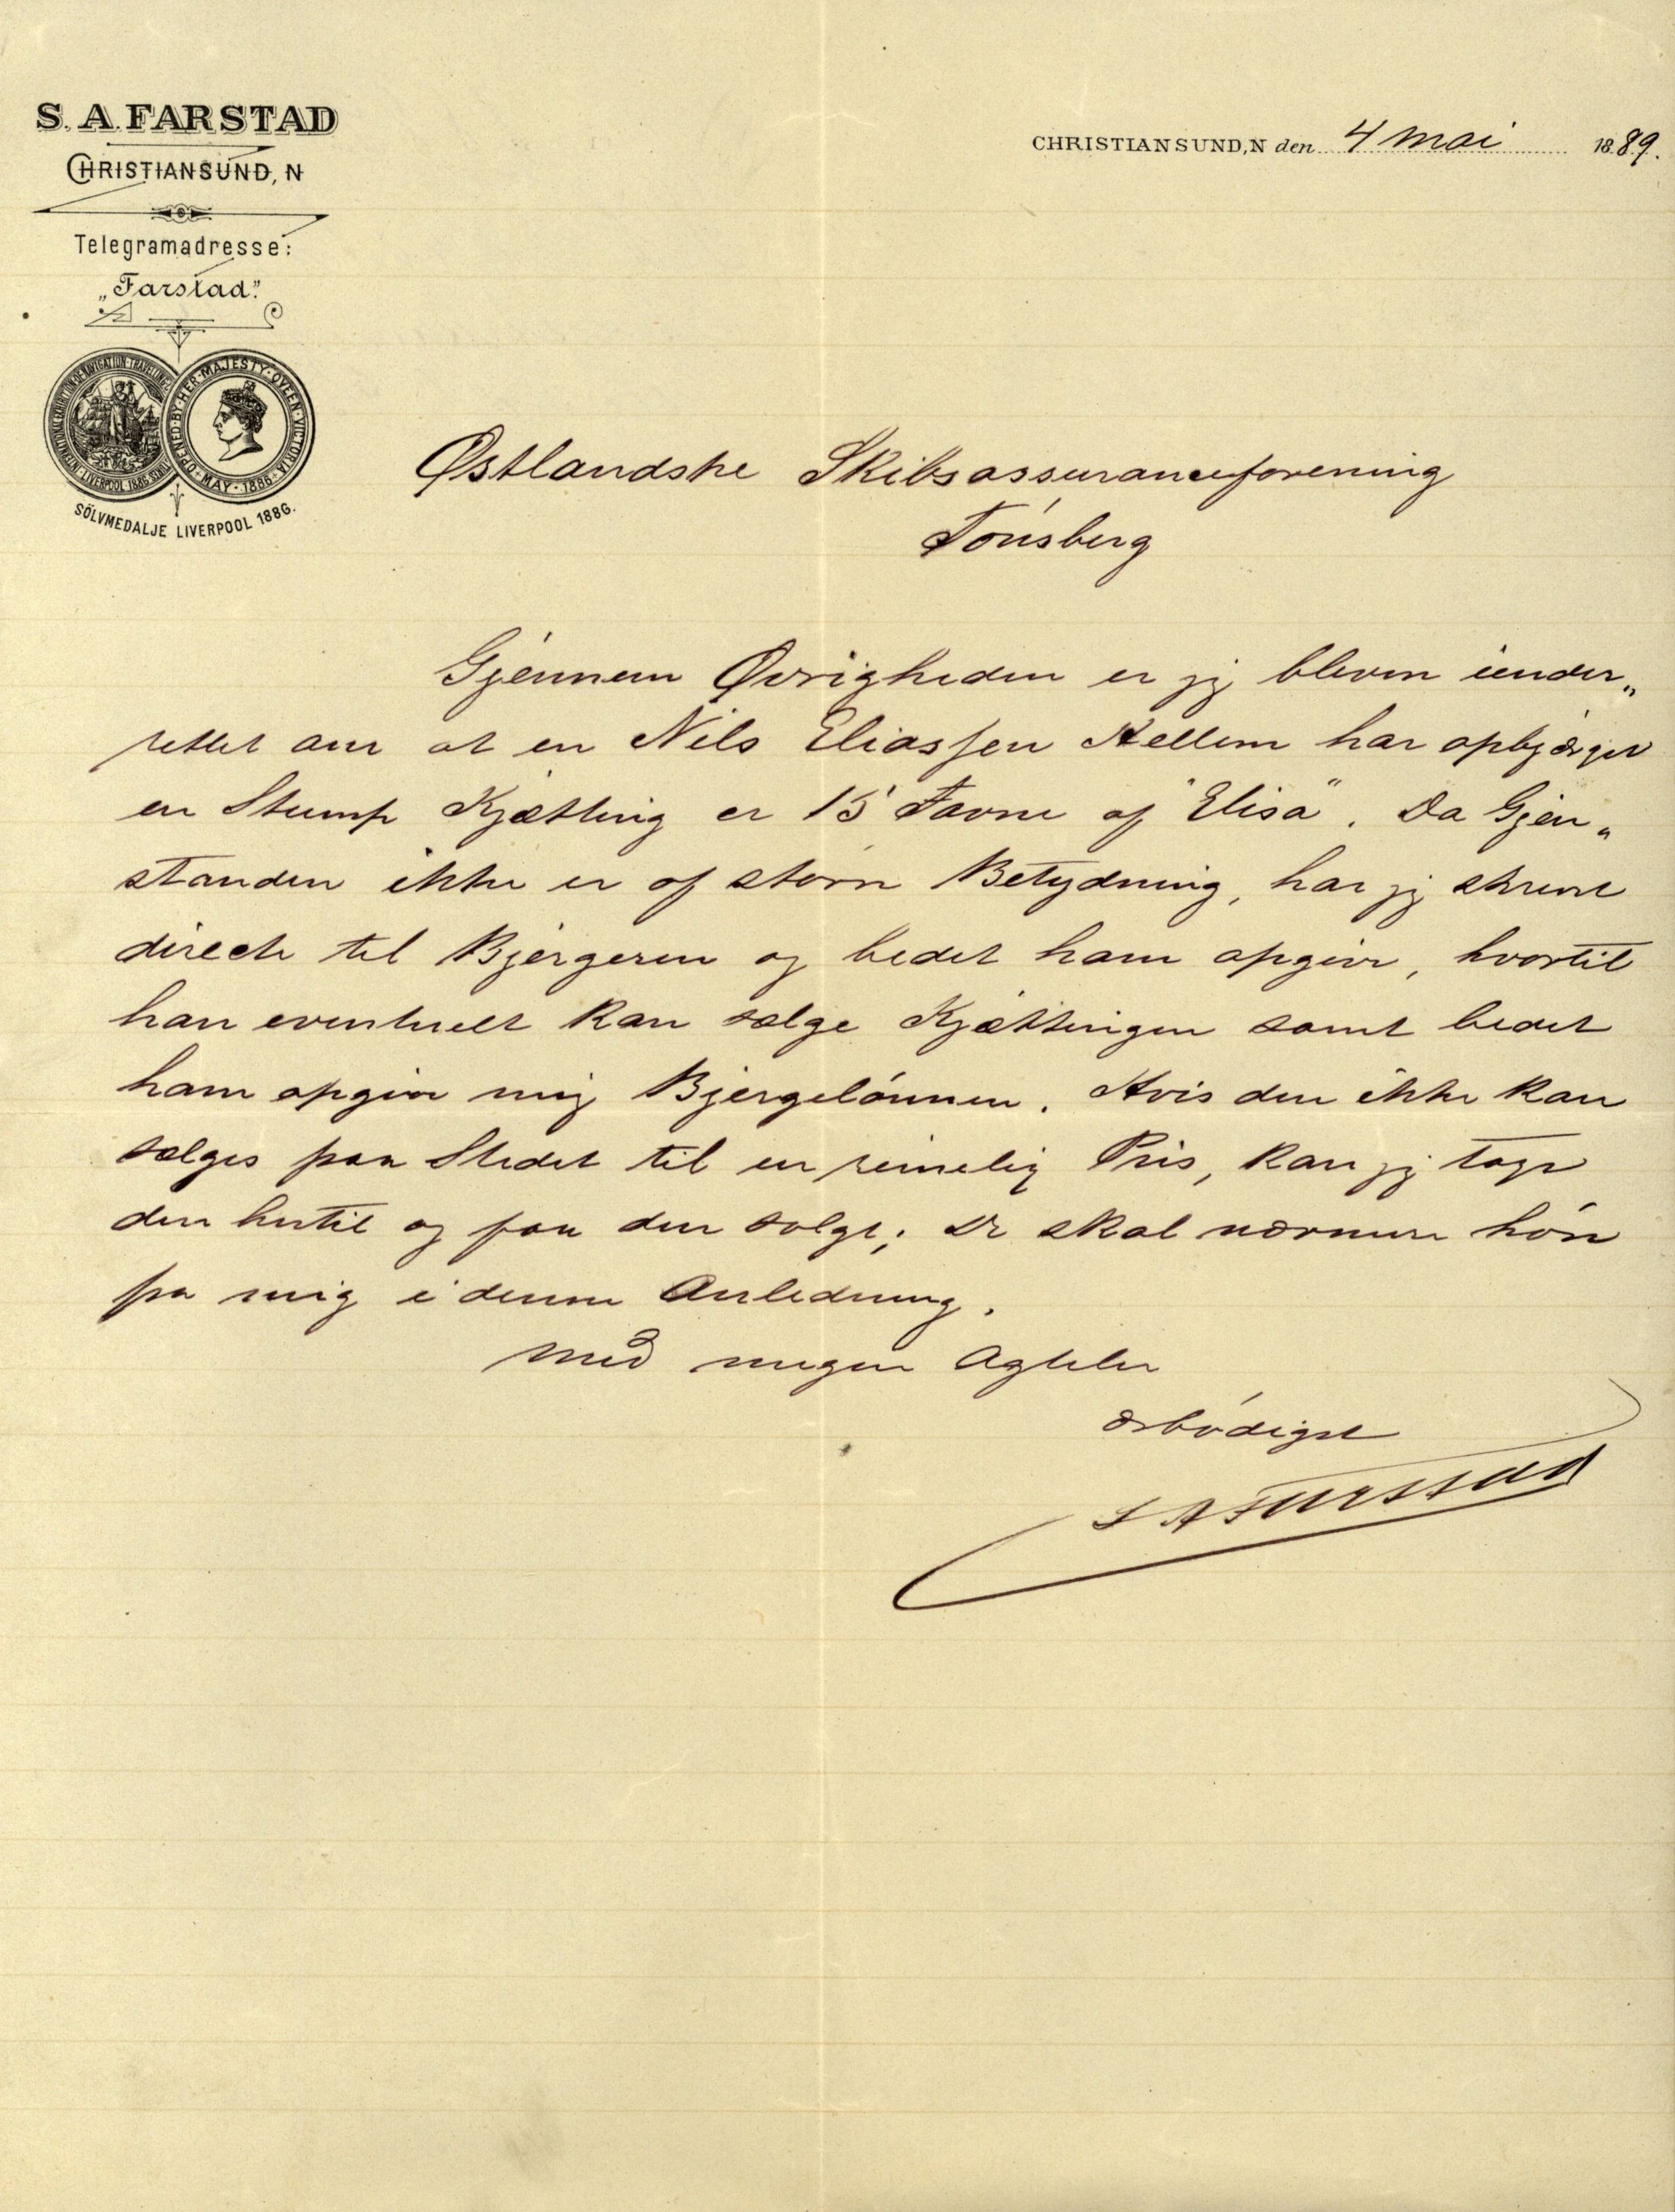 S. A. FARSTAD
CHRISTIANSUND, N
Telegramadresse:
„Farstad."
OPENED·BY·HER·MAJESTY·QVEEN·VICTORIA·MAY·1886·
SÖLVMEDALJE LIVERPOOL 1886.
CHRISTIANSUND, N den 4 Mai 1889.
Østlandske Skibsassuranceforening
Tönsberg
Gjennem Øvrigheden er jeg bleven under„
rettet om at en Nils Eliassen Hellem har opbjærget
en Stump Kjætting er 15 Favne af "Elisa". Da Gjen„
standen ikke er af større Betydning, har jeg skrevet
directe til Bjergeren og bedet ham opgive, hvortil
han eventuelt kan sælge Kjættingen samt bedet
ham opgive mig Bjergelönnen. Hvis den ikke kan
sælges paa Stedet til en rimelig Pris, kan jeg tage
den hertil og faa den solgt; De skal nærmere höre
fra mig i denne Anledning.
Med megen Agtelse
ærbödigst
S A Farstad